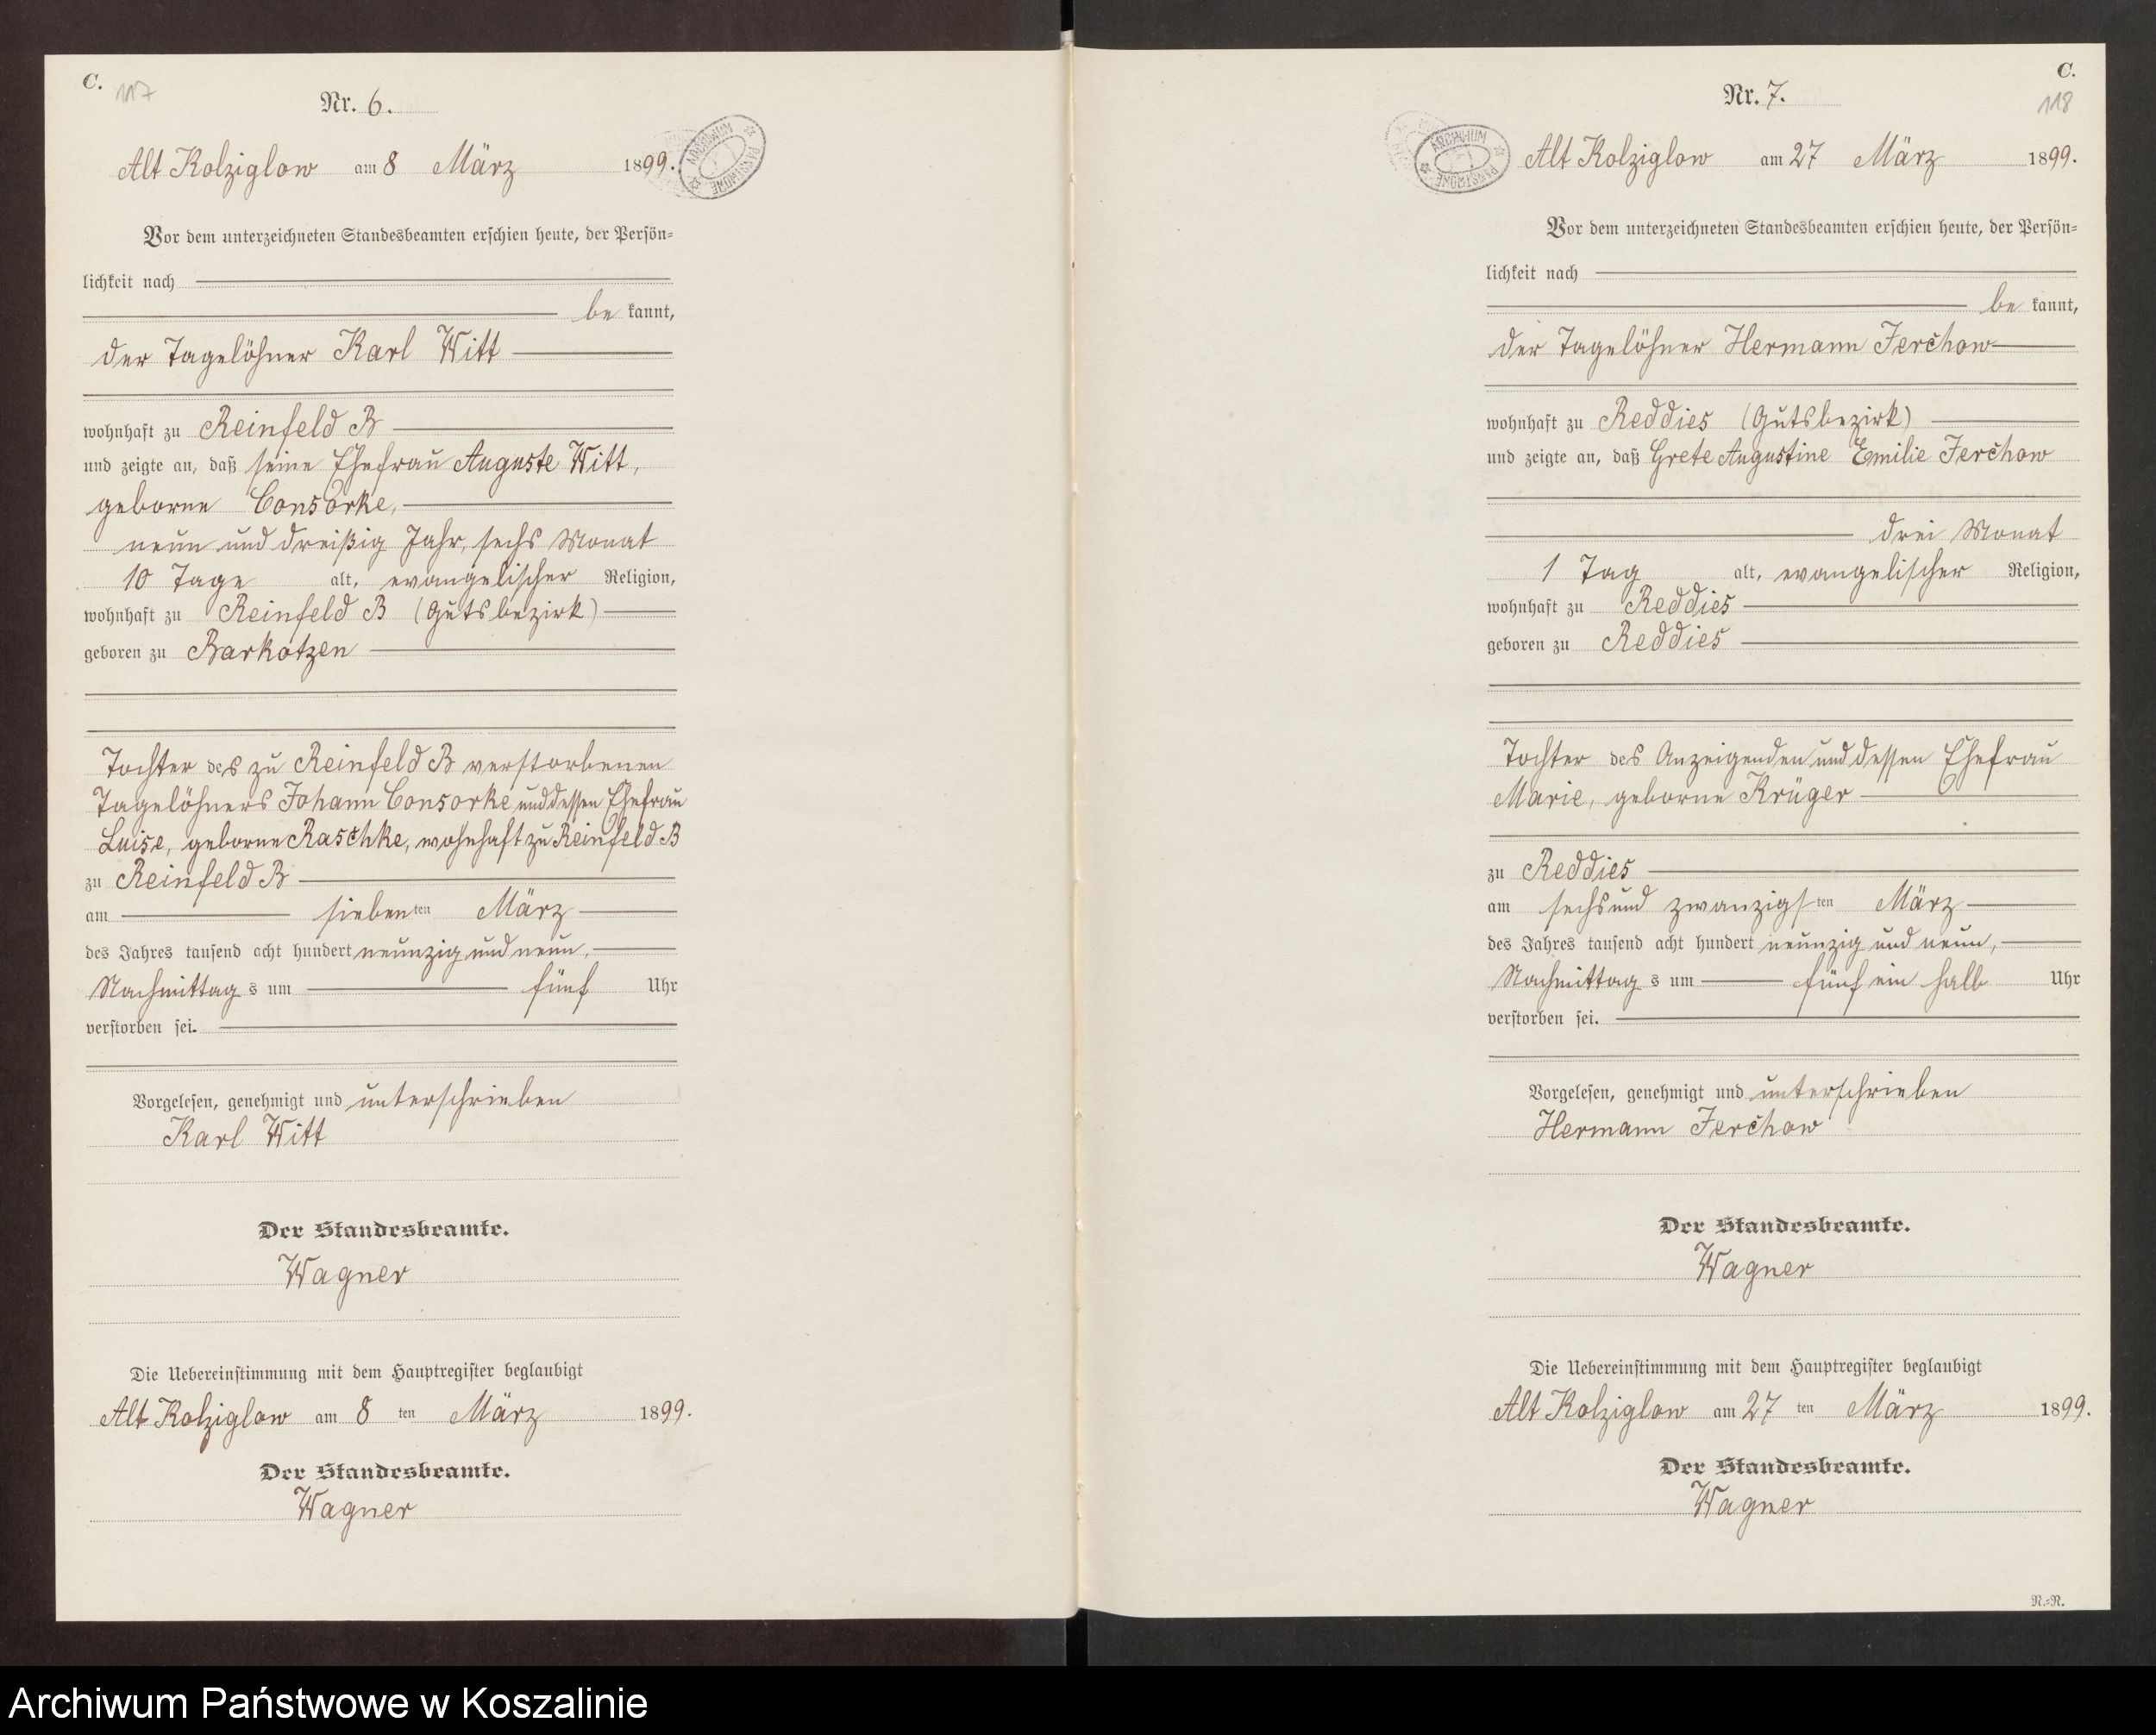 C.
117
Nr. 6.
Alt Kolziglow am 8 März 1899.
ARCHIWUM PAŃSTWOWE
Vor dem unterzeichneten Standesbeamten erschien heute, der Persön-
lichkeit nach
be kannt,
der Tagelöhner Karl Witt
wohnhaft zu Reinfeld B
und zeigte an, daß seine Ehefrau Auguste Witt,
geborne Consorke,
neun und dreißig Jahr, sechs Monat
10 Tage alt, evangelischer Religion,
wohnhaft zu Reinfeld B (Gutsbezirk)
geboren zu Barkotzen
Tochter des zu Reinfeld B verstorbenen
Tagelöhners Johann Consorke und dessen Ehefrau
Luise, geborne Raschke, wohnhaft zu Reinfeld B
zu Reinfeld B
am siebenten März
des Jahres tausend acht hundert neunzig und neun,
Nachmittags um fünf Uhr
verstorben sei.
Vorgelesen, genehmigt und unterschrieben
Karl Witt
Der Standesbeamte.
Wagner
Die Uebereinstimmung mit dem Hauptregister beglaubigt
Alt Kolziglow am 8 ten März 1899.
Der Standesbeamte.
Wagner
C.
118
Nr. 7.
ARCHIWUM PAŃSTWOWE
Alt Kolziglow am 27 März 1899.
Vor dem unterzeichneten Standesbeamten erschien heute, der Persön-
lichkeit nach
be kannt,
der Tagelöhner Hermann Jerchow
wohnhaft zu Reddies (Gutsbezirk)
und zeigte an, daß Grete Augustine Emilie Jerchow
drei Monat
1 Tag alt, evangelischer Religion,
wohnhaft zu Reddies
geboren zu Reddies
Tochter des Anzeigenden und dessen Ehefrau
Marie, geborne Krüger
zu Reddies
am sechs und zwanzigsten März
des Jahres tausend acht hundert neunzig und neun,
Nachmittags um fünf ein halb Uhr
verstorben sei.
Vorgelesen, genehmigt und unterschrieben
Hermann Jerchow
Der Standesbeamte.
Wagner
Die Uebereinstimmung mit dem Hauptregister beglaubigt
Alt Kolziglow am 27 ten März 1899.
Der Standesbeamte.
Wagner
R.=R.
Archiwum Państwowe w Koszalinie